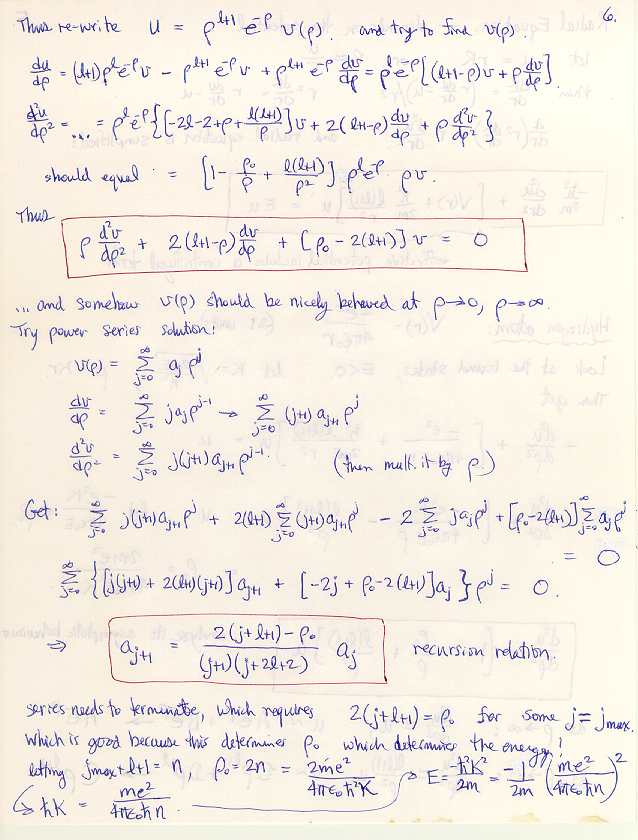 6.
Thus re-write u = ρ^{l+1} e^{-ρ} v(ρ). and try to find v(ρ).
du/dρ = (l+1)ρ^l e^{-ρ} v − ρ^{l+1} e^{-ρ} v + ρ^{l+1} e^{-ρ} dv/dρ = ρ^l e^{-ρ} [(l+1-ρ)v + ρ dv/dρ].
d²u/dρ² = ... = ρ^l e^{-ρ} {[-2l-2+ρ+ l(l+1)/ρ] v + 2(l+1-ρ) dv/dρ + ρ d²v/dρ²}
should equal = [1 - ρ₀/ρ + l(l+1)/ρ²] ρ^l e^{-ρ} . ρv.
Thus
ρ d²v/dρ² + 2(l+1-ρ) dv/dρ + [ρ₀ - 2(l+1)] v = 0
... and somehow v(ρ) should be nicely behaved at ρ→0, ρ→∞.
Try power series solution:
v(ρ) = Σ_{j=0}^∞ a_j ρ^j
dv/dρ = Σ_{j=0}^∞ j a_j ρ^{j-1} → Σ_{j=0}^∞ (j+1) a_{j+1} ρ^j
d²v/dρ² = Σ_{j=0}^∞ j(j+1) a_{j+1} ρ^{j-1}. (then mult. it by ρ)
Get: Σ_{j=0}^∞ j(j+1) a_{j+1} ρ^j + 2(l+1) Σ_{j=0}^∞ (j+1) a_{j+1} ρ^j − 2 Σ_{j=0}^∞ j a_j ρ^j + [ρ₀-2(l+1)] Σ_{j=0}^∞ a_j ρ^j
= 0
Σ_{j=0}^∞ {[j(j+1) + 2(l+1)(j+1)] a_{j+1} + [-2j + ρ₀ - 2(l+1)] a_j} ρ^j = 0.
⇒ a_{j+1} = (2(j+l+1) - ρ₀)/((j+1)(j+2l+2)) a_j recursion relation.
series needs to terminate, which requires 2(j+l+1) = ρ₀ for some j = j_max.
which is good because this determines ρ₀ which determines the energy!
letting j_max + l + 1 = n, ρ₀ = 2n = 2me²/(4πε₀ħ²K) → E = -ħ²K²/2m = -1/2m (me²/(4πε₀ħn))²
↳ ħK = me²/(4πε₀ħn)